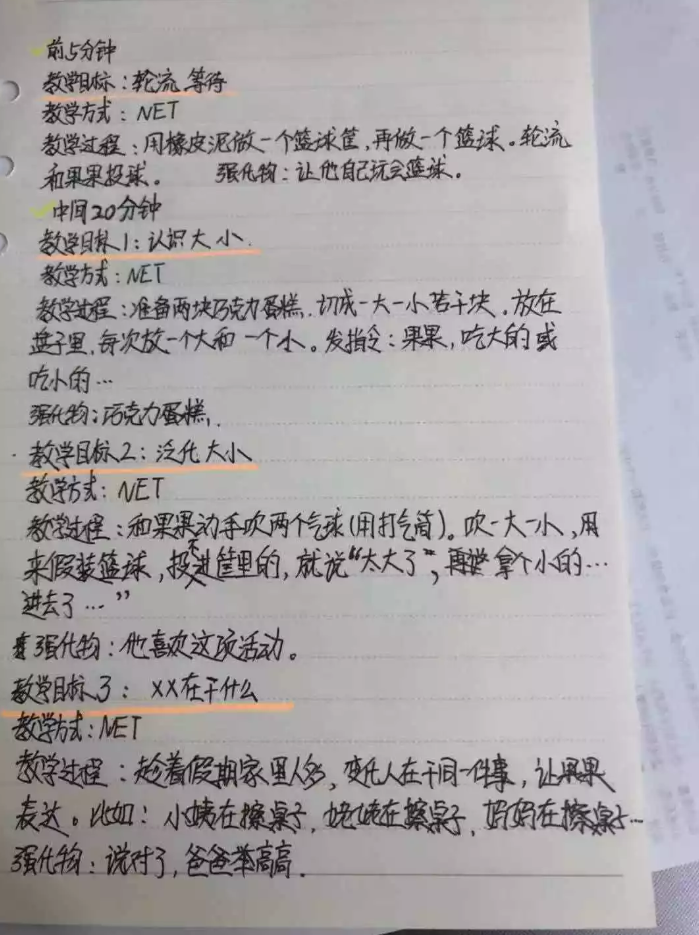 前5分钟
教学目标:轮流、等待
教学方式:NET
教学过程:用橡皮泥做一个篮球筐,再做一个篮球。轮流
和果果投球。 强化物:让他自己玩会篮球。
中间20分钟
教学目标1:认识大小.
教学方式:NET
教学过程:准备两块巧克力蛋糕,切成一大一小若干块。放在
盘子里,每次放一个大和一个小。发指令:果果,吃大的或
吃小的…
强化物:巧克力蛋糕.
教学目标2:泛化大小
教学方式:NET
教学过程:和果果动手吹两个气球(用打气筒)。吹一大一小,用
来假装篮球,投不进筐里的,就说“太大了”,再拿个小的…
进去了…”
强化物:他喜欢这项活动。
教学目标3: XX在干什么
教学方式:NET
教学过程:趁着假期家里人多,变化人在干同一件事,让果果
表达。比如:小姨在擦桌子,姥姥在擦桌子,妈妈在擦桌子…
强化物:说对了,爸爸举高高.